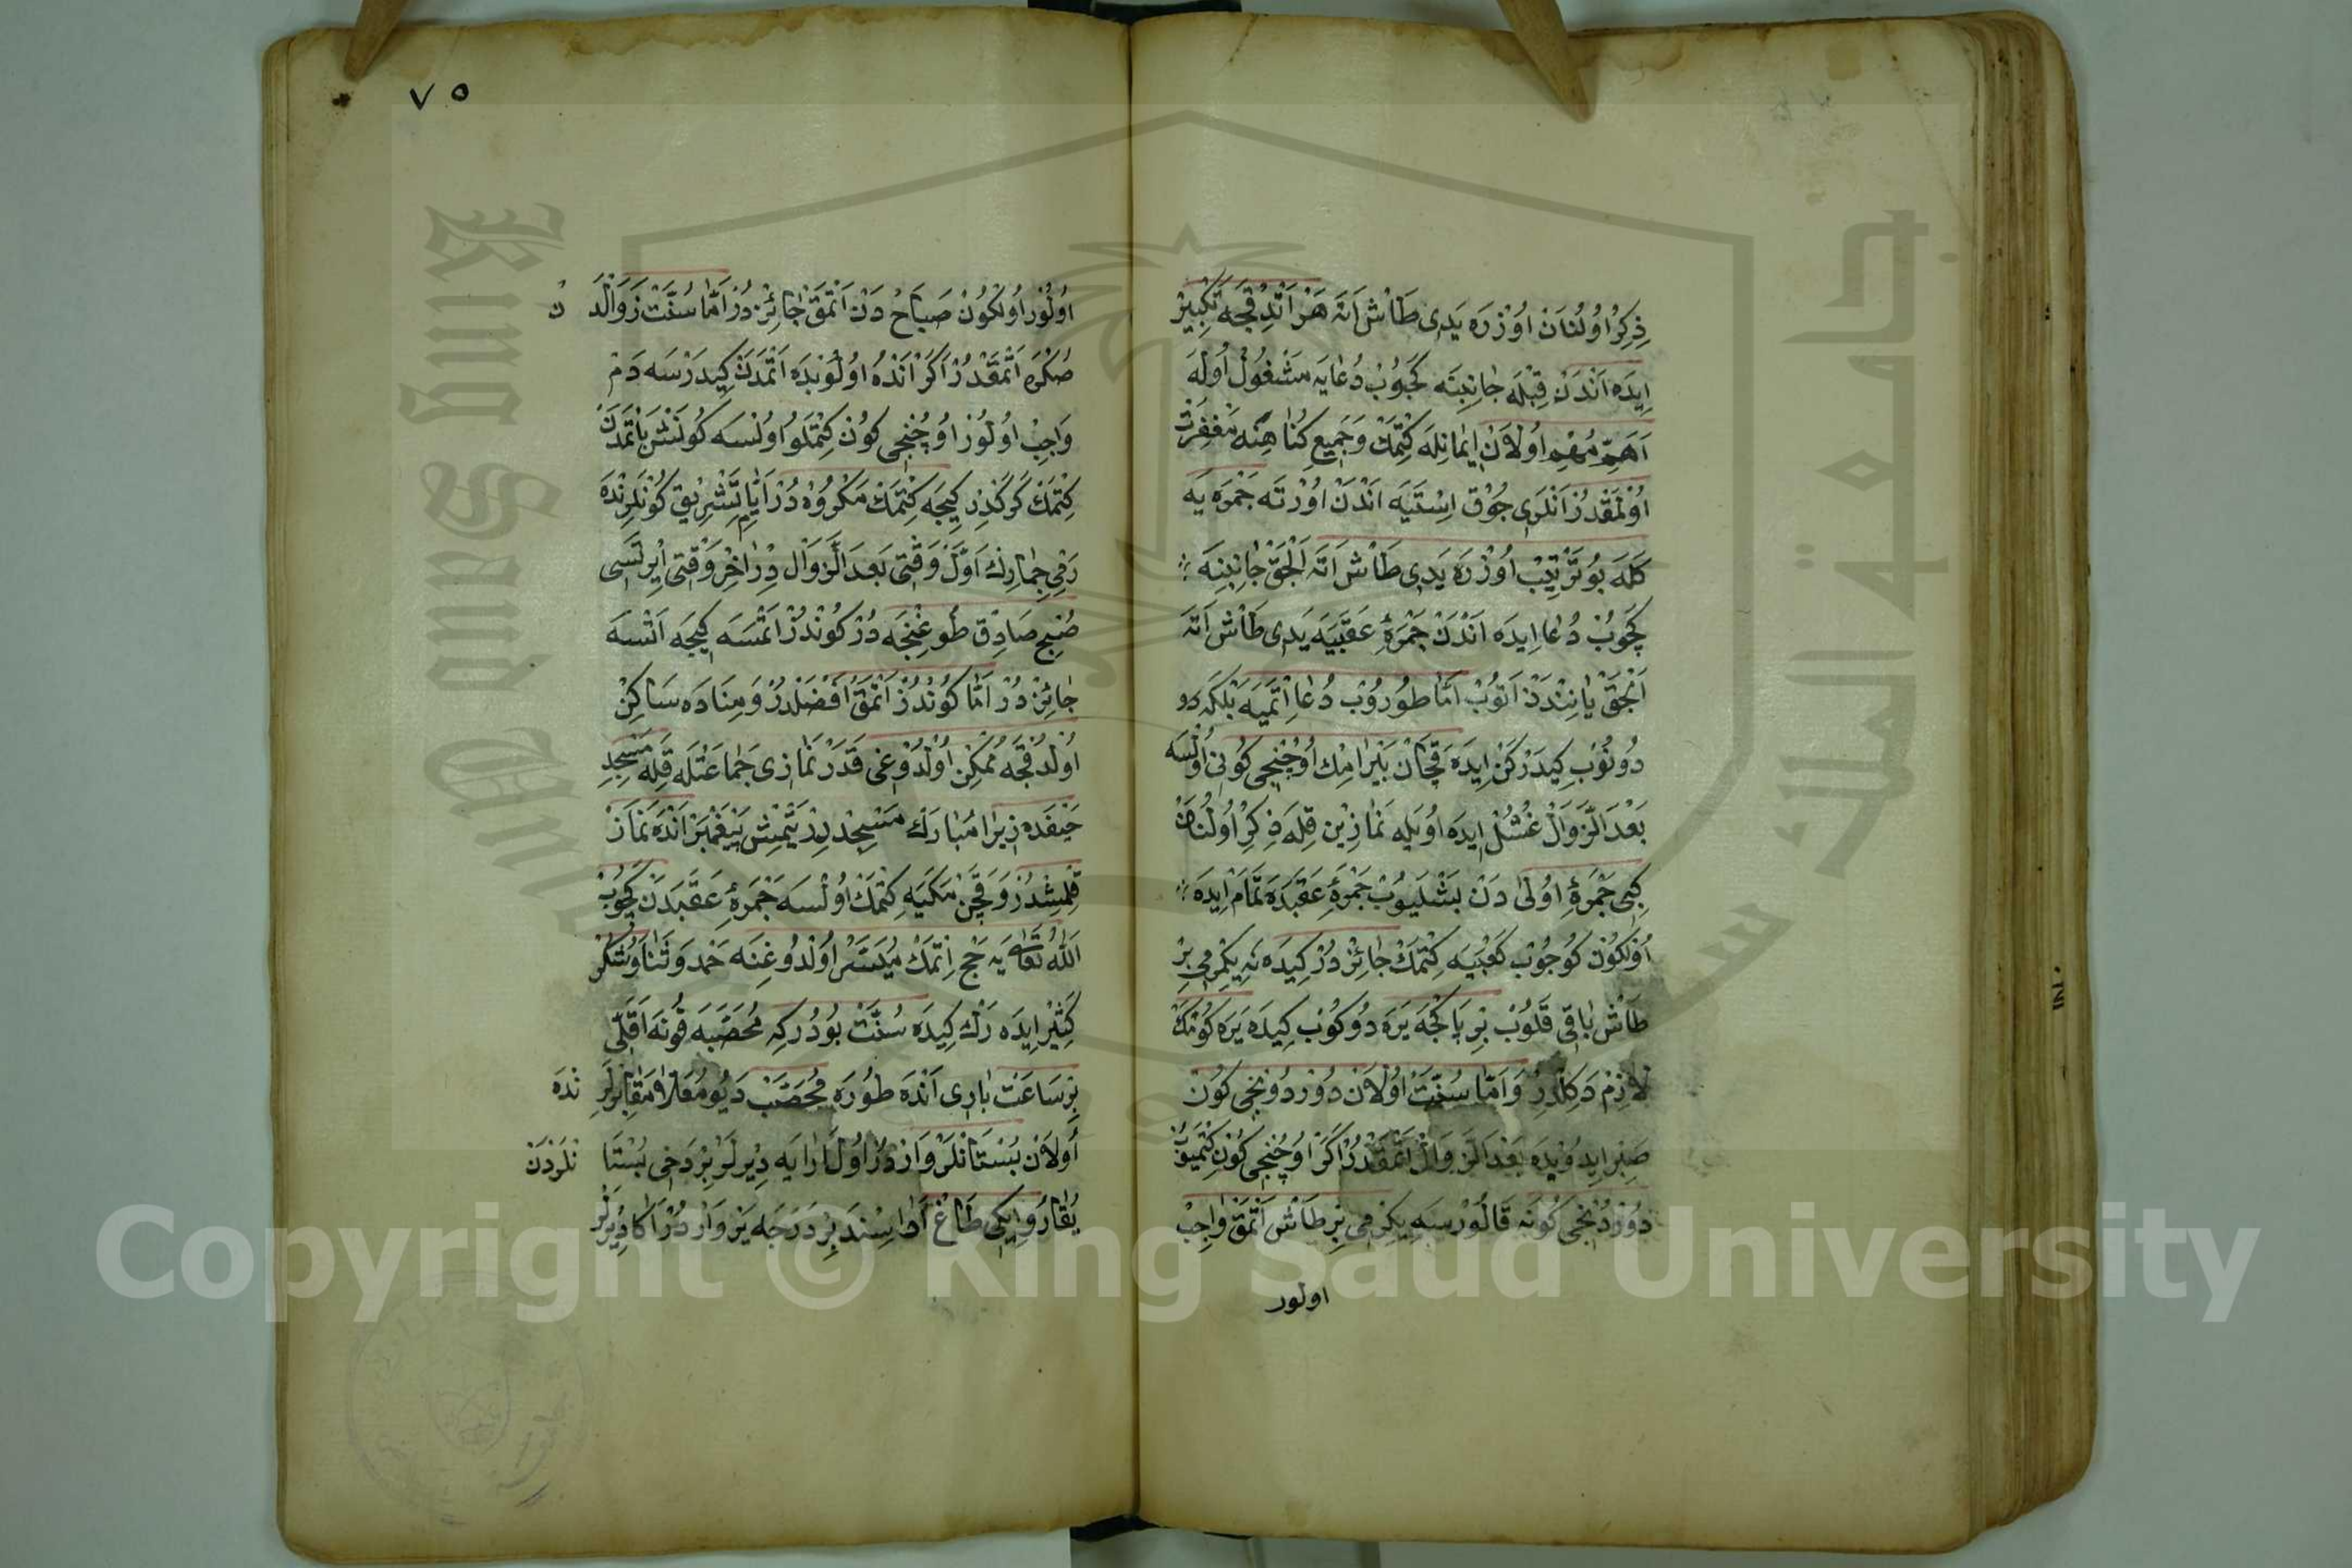 ذِكِرْ اُولُنَانْ اوُزْرَه يَدِى طَاشْ اَتَه هَرْ اَتْدِقْجَه تَكْبِيرْ
ايِدَه اَنْدَنْ قِبْلَه جَانِبِنَه كَچُوبْ دُعَايَه مَشْغُولْ اُولَه
اَهَمِّ مُهِمْ اُولَانْ ايمَانِلَه كِتْمَكْ وَجَمِيعِ كُنَاهِنَه مَغْفِرَتْ
اوُلْمَقْدُرْ اَنْلَرِى چُوقْ اِسْتَيَه اَنْدَنْ اوُرْتَه جَمْرَه يَه
كَلَه بُو تَرْتِيبْ اوُزْرَه يَدِى طَاشْ اَتَه اَلْجَقْ جَانِبِنَه
كَچُوبْ دُعَا ايِدَه اَنْدَنْ جَمْرَۀِ عَقَبَيَه يَدِى طَاشْ اَتَه
اَنْجَقْ يَانِنْدَنْ اَتُوبْ اَمَّا طُورُوبْ دُعَا اِتْمَيَه بَلْكَه
دُونُوبْ كِيدَرْكَنْ ايِدَه قَچَانْ بَيْرَامِكْ اُوچُنْجِى كُونِى اوُلْسَه
بَعْدَ الزَّوَالْ غُسُلْ ايِدَه اوُيْلَه نَمَازِينْ قِلَه ذِكِرْ اُولُنَانْ
كِبِى جَمْرَۀِ اوُلَى دَنْ بَشْلَيوُبْ جَمْرَۀِ عَقَبَدَه تَمَامْ ايِدَه
اُولْكُونْ كُوچُوبْ كَعْبَيَه كِتْمَكْ جَائِزْ دُرْ كِيدَه نَه يِكِرْمِى بِرْ
طَاشْ بَاقِى قَلُوبْ بِرْ پَاكْجَه يَرَه دُوكُوبْ كِيدَه يَرَه كُومْكْ
لَازِمْ دَكِلْدِرْ وَاَمَّا سُنَّتْ اوُلَانْ دُورْدُونْجِى كُونْ
صَبِرْ ايِدُوبْدَه بَعْدَ الزَّوَالْ اَتْمَقْدُرْ اَكَرْ اوُچُنْجِى كُونْ كِتْمَيوُبْ
دُورْدُنْجِى كُونَه قَالُورْسَه يِكِرْمِى بِرْ طَاشْ اَتْمَقْ وَاجِبْ
اولور
٧٥
اُولُورْ اُولْكُونْ صَبَاحْ دَنْ اَتْمَقْ جَائِزْ دُرْ اَمَّا سُنَّتْ زَوَالْدَنْ
صُكْرَه اَتْمَقْدُرْ اَكَرْ اَنْدَه اوُلُوبْدَه اَتْمَدَنْ كِيدَرْسَه دَمْ
وَاجِبْ اُولُورْ اوُچُنْجِى كُونْ كِتْمَلُو اوُلْسَه كُونَشْ بَاتْمَدَنْ
كِتْمَكْ كَرَكْدِرْ كِيجَه كِتْمَكْ مَكْرُوهْ دُرْ اَيَّامِ تَشْرِيقْ كُونْلَرِنْدَه
رَمْىِ جِمَارِكْ اَوَّلْ وَقْتِى بَعْدَ الزَّوَالْ دِرْ اخِرْ وَقْتِى ايِرْتَسِى
صُبْحِ صَادِقْ طُوغِنْجَه دُرْ كُونْدُزْ اَتْمَسَه كِيجَه اَتْسَه
جَائِزْ دُرْ اَمَّا كُونْدُزْ اَتْمَقْ اَفْضَلْدُرْ وَمِنَادَه سَاكِنْ
اُولْدُقْجَه مُمْكِنْ اُولْدُوغِى قَدَرْ نَمَازِى جَمَاعَتْلَه قِلَه مَسْجِدِ
خَيْفَدَه زِيرَا مُبَارَكْ مَسْجِدْ دِرْ يَتْمِشْ پَيْغَمْبَرْ اَنْدَه نَمَازْ
قِلْمِشْدُرْ وَقَچَنْ مَكَيَه كِتْمَكْ اوُلْسَه جَمْرَۀِ عَقَبَدَنْ كَچُوبْ
اَللّٰه تَعَالَى يَه حَجْ اِتْمَكْ مُيَسَّرْ اُولْدُوغِنَه حَمْد وَثَنَا وَشُكُرْ
كَثِيرْ ايِدَه رَكْ كِيدَه سُنَّتْ بُودُرْكِه مُحَصَّبَه قُونَه اَقَلِّى
بِرْ سَاعَتْ بَارِى اَنْدَه طُورَه مُحَصَّبْ دَيُو مُعَلَّا مَقَابِرْلَرِنْدَه
اُولَانْ بُسْتَانْلَرْ وَارْدُرْ اُولْ اَرَايَه دِيرْلَرْ بِرْ دَخِى بُسْتَانْلَرْدَنْ
يُقَارُو ايِكِى طَاغْ اَرَاسِنْدَه بِرْ دَرَجَه يَرْ وَارْ دُرْ اَكَا دِيرْلَرْ
Copyright © King Saud University
جامعة الملك سعود
King Saud University